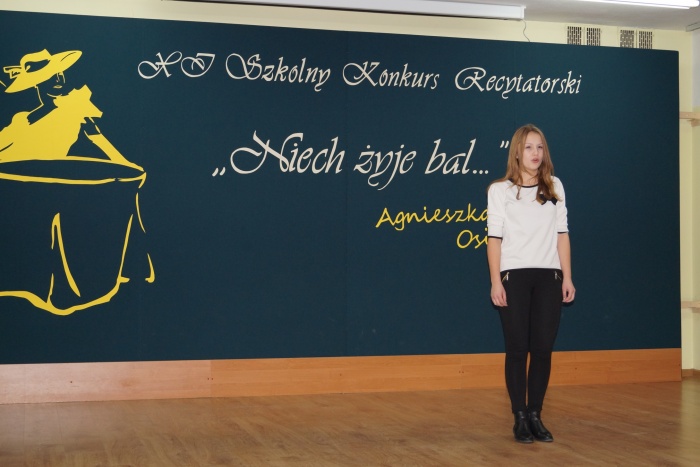 XI Szkolny Konkurs Recytatorski
„Niech żyje bal..."
Agnieszka